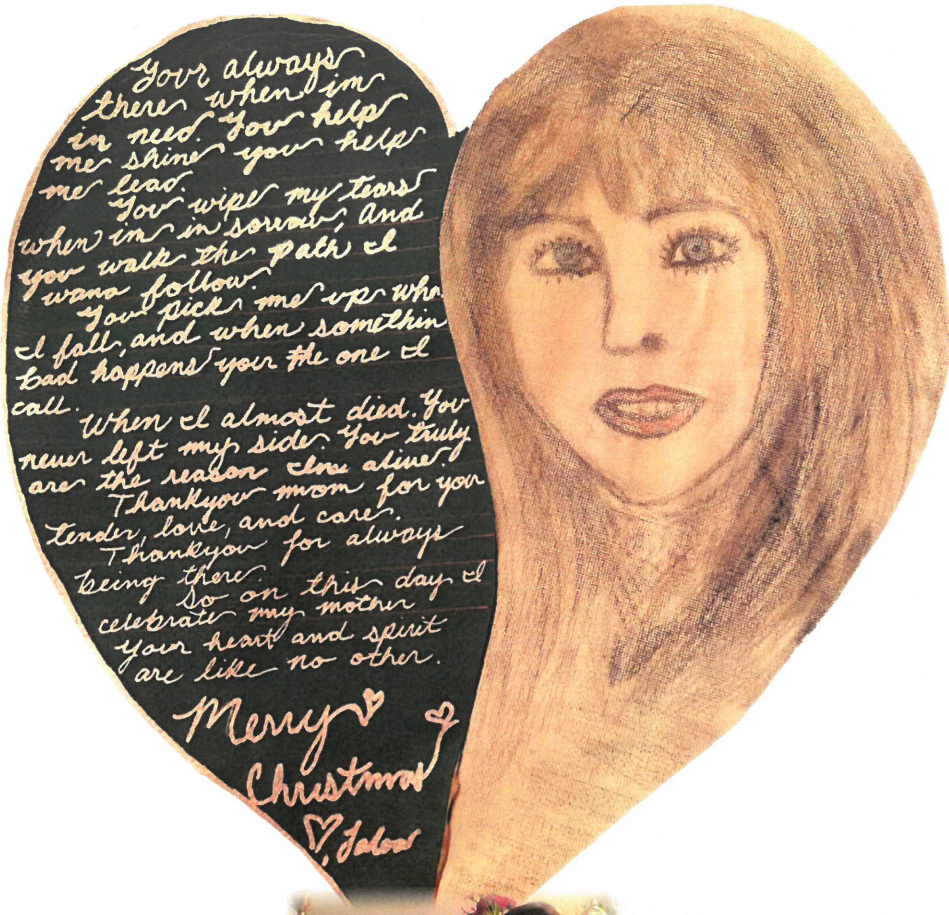 Your always
there when im
in need. You help
me shine you help
me lead.
You wipe my tears
when im in sorrow, and
you walk the path I
wana follow.
You pick me up when
I fall, and when somethin
bad happens your the one I
call.
When I almost died. You
never left my side. You truly
are the reason Ime alive.
Thankyou mom for your
tender, love, and care.
Thankyou for always
being there.
So on this day I
celebrate my mother
your heart and spirit
are like no other.
Merry
Christmas